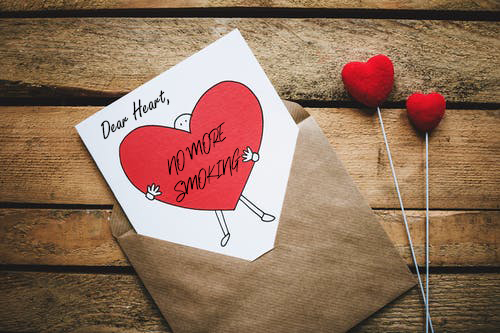 Dear Heart,
NO MORE
SMOKING